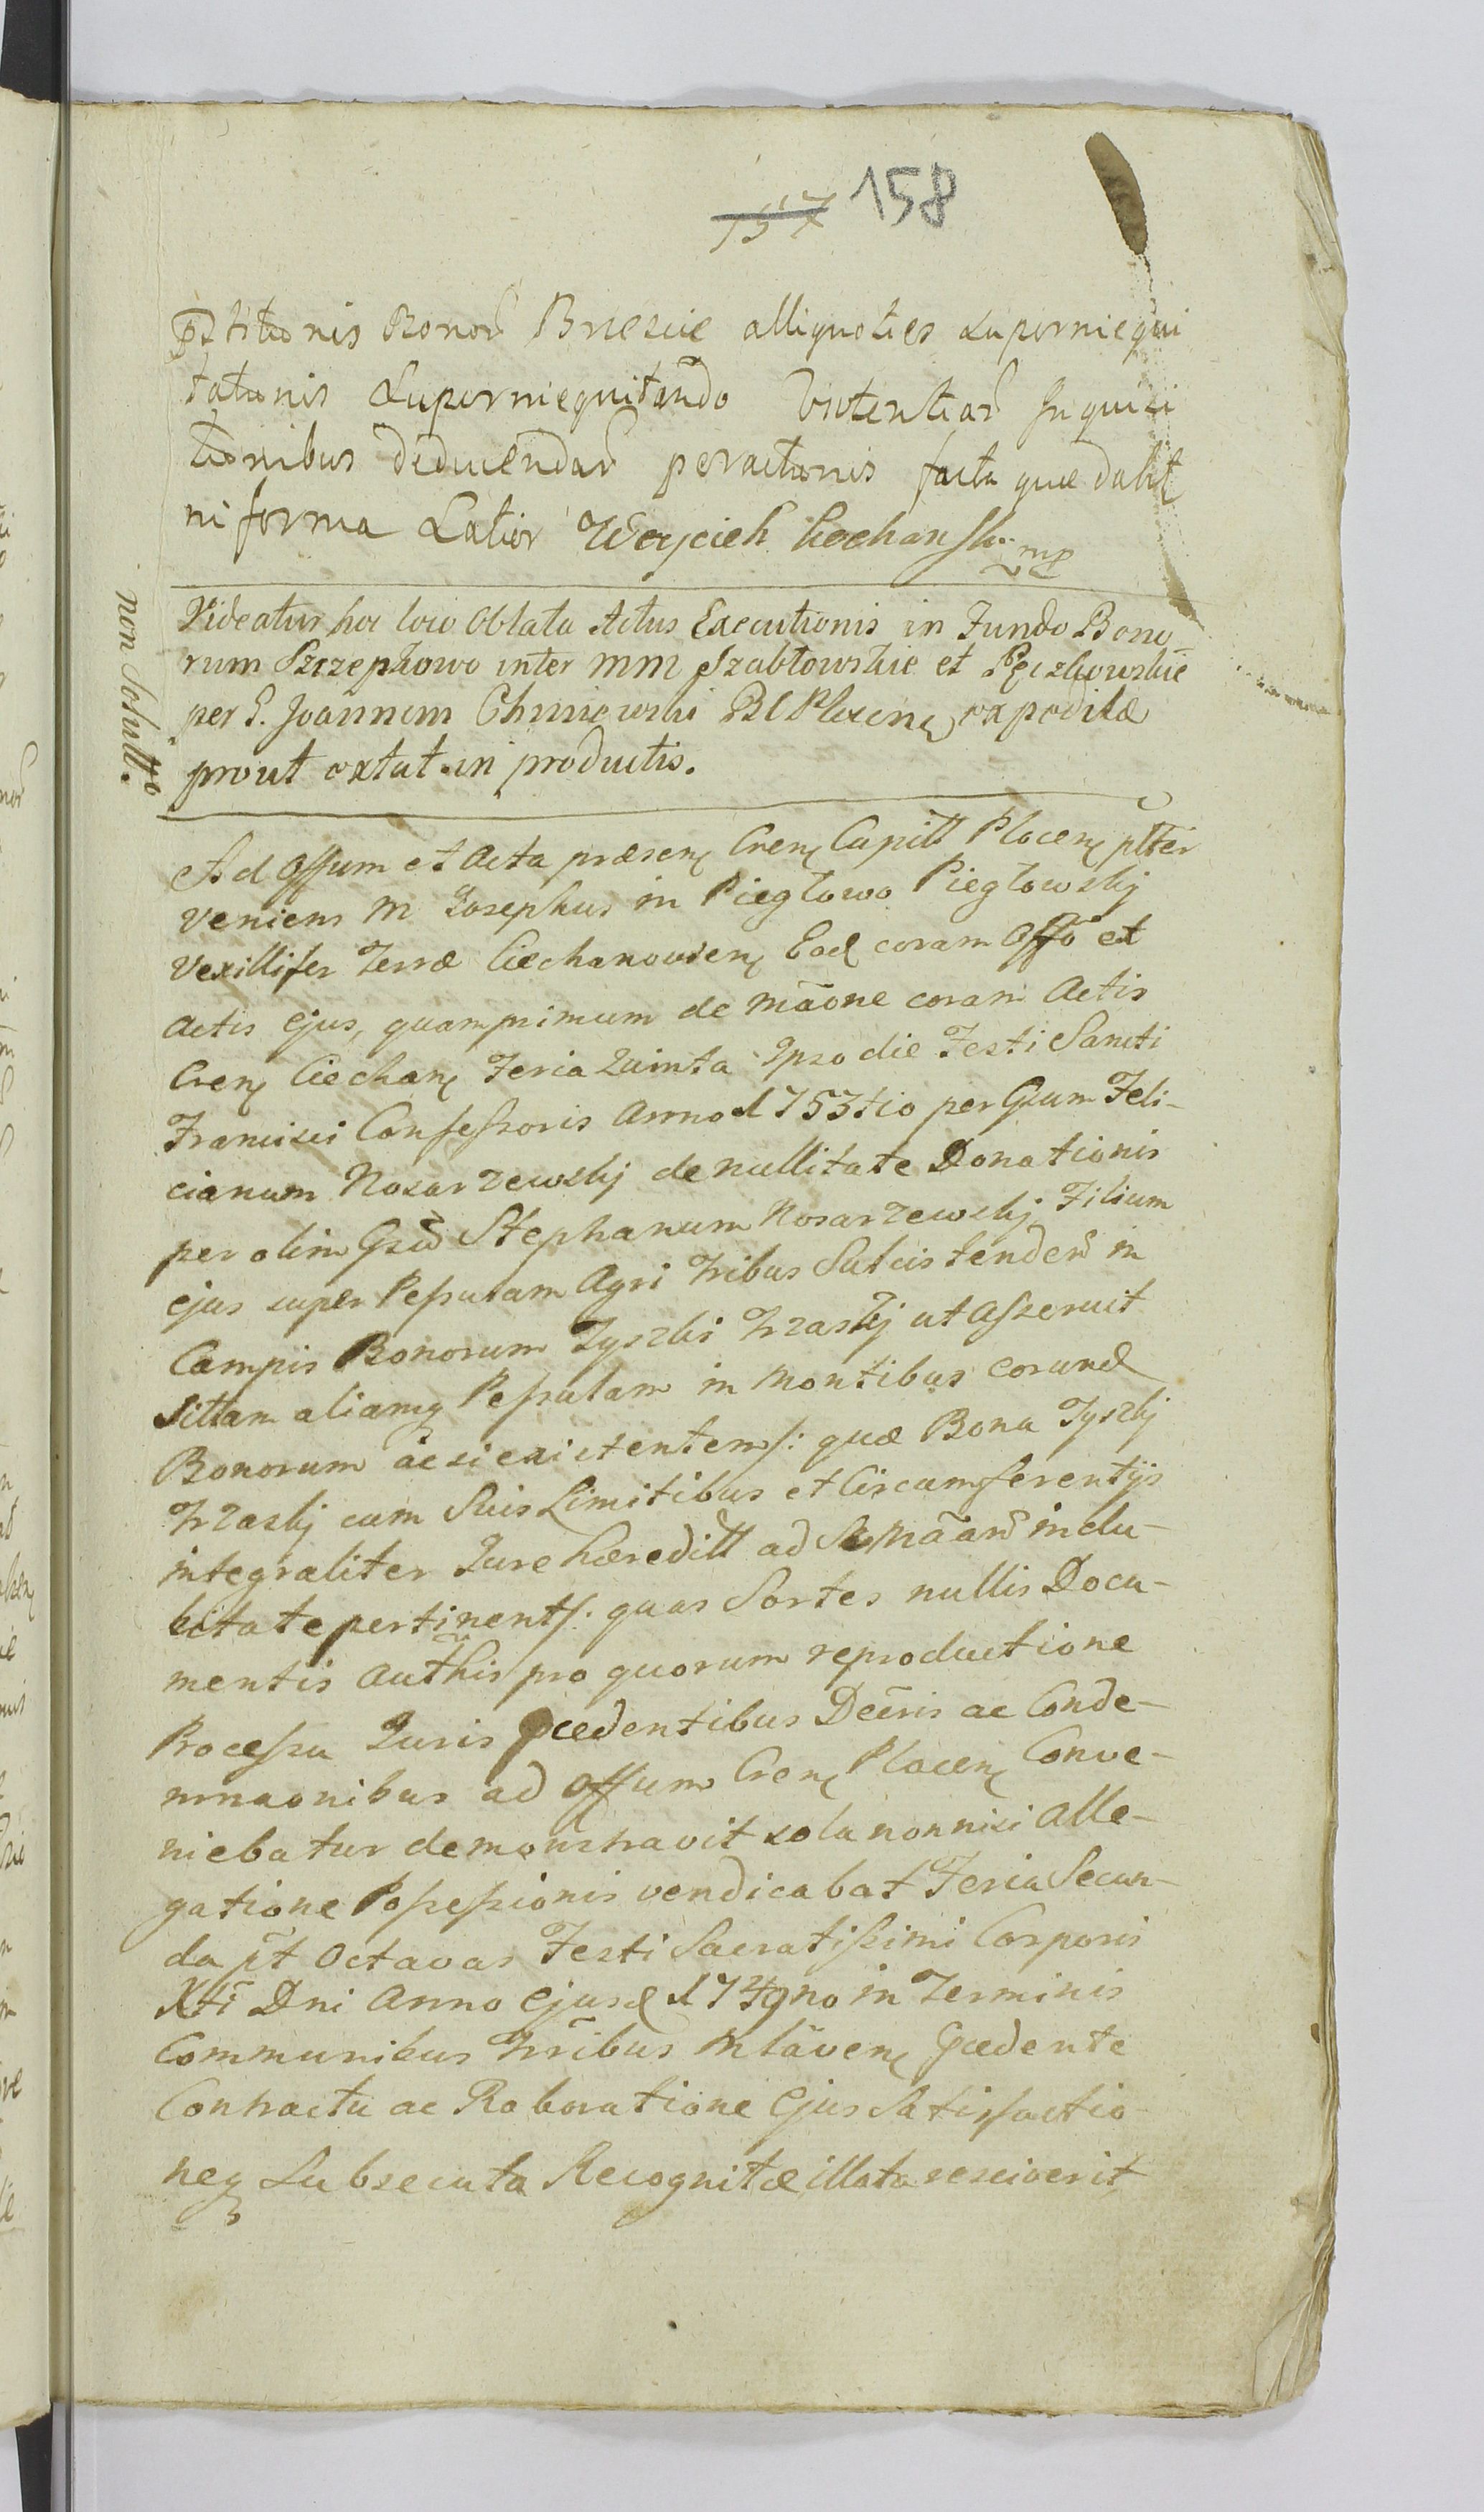 157 158
Bonor Brzescie alliquoties superniequi
tationis Superniequitando Violentiar Inquisi
tionibus deducendar peractionis facta quæ dabit
in forma Latior Woyciech Kochanski mp
Videatur hoc loco Oblata Actus Executionis in Fundo Bono
rum Szczepkowo inter MM Szabłowskie et Pęczkowskie
per G. Joannem Chmiewski expeditæ
prout extat in productis.
non Solutt.
Ad Offum et Acta præsen Cren Capitt Plocen plter
veniens M Josephus in Piegłowo Piegłowskj
Vexillifer Terræ Ciechanovien Eod coram Offo et
Actis ejus, quamprimum de Mãone coram Actis
Cren Ciechan Feria Quinta Ipso die Festi Sancti
Francisci Confessoris Anno 1753tio per Gsum Feli-
cianum Nosarzewskj de nullitate Donationis
per olim Gsu Stephanum Nosarzewskj Filium
ejus super Pessulam Agri tribus Sulcis tender in
Campis Bonorum Tyszki Trzaskj ut Asseruit
Sittam aliamq Pessulam in Montibus eorund
Bonorum ac si existentem /: quæ Bona Tyszkj
Trzaskj cum Suis Limitibus et Circumferentijs
integraliter Jure hæreditt ad Se Mãar indu-
bitate pertinent /: quas Sortes nullis Docu-
mentis Authis pro quorum reproductione
Processu Juris præcedentibus Decris ac Conde-
mnaonibus ad Offum Cren Plocen Conve-
niebatur demonstravit sola nonnisi Alle-
gatione Possessionis vendicabat Feria Secun-
da pt Octavas Festi Sacratissimi Corporis
Xti Dni Anno Ejusd 1749no in Terminis
Communibus Tribus Mlaven præcedente
Contractu ac Roboratione Ejus Satisfactio
neq Subsecuta Recognitæ illata resciverit